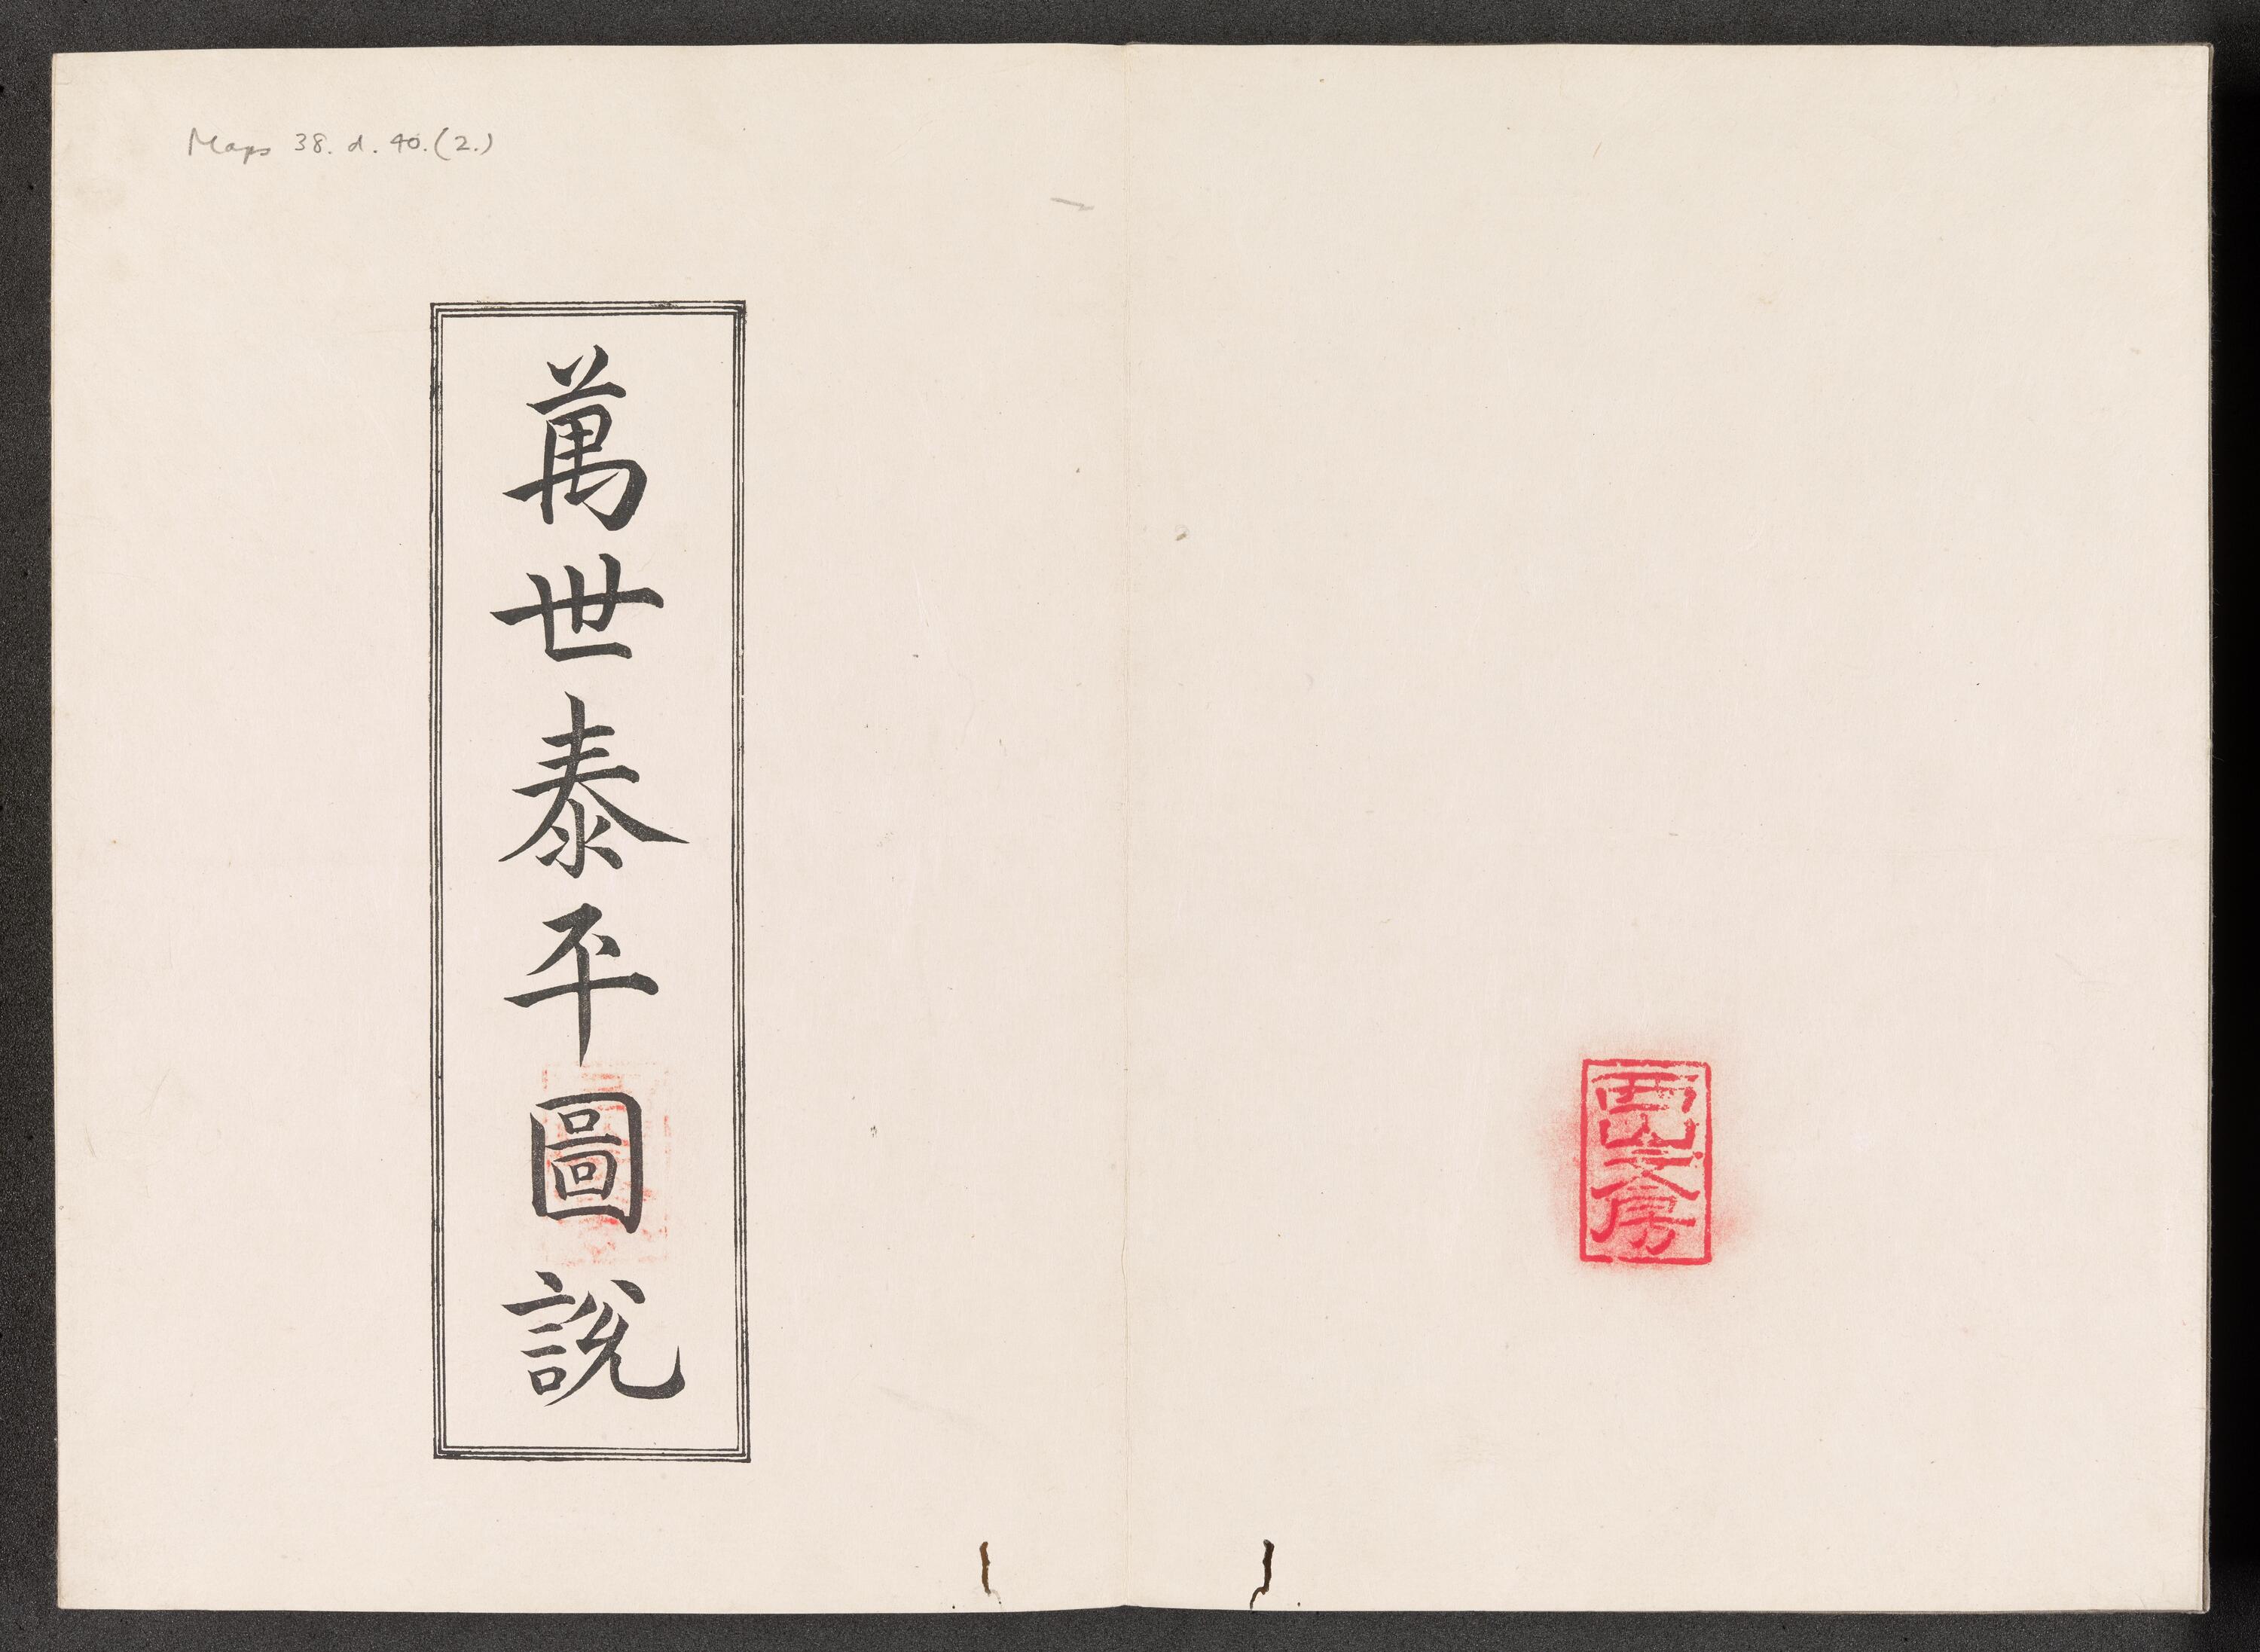 Maps 38. d. 40. (2.)
萬世泰平圖說
西山文房